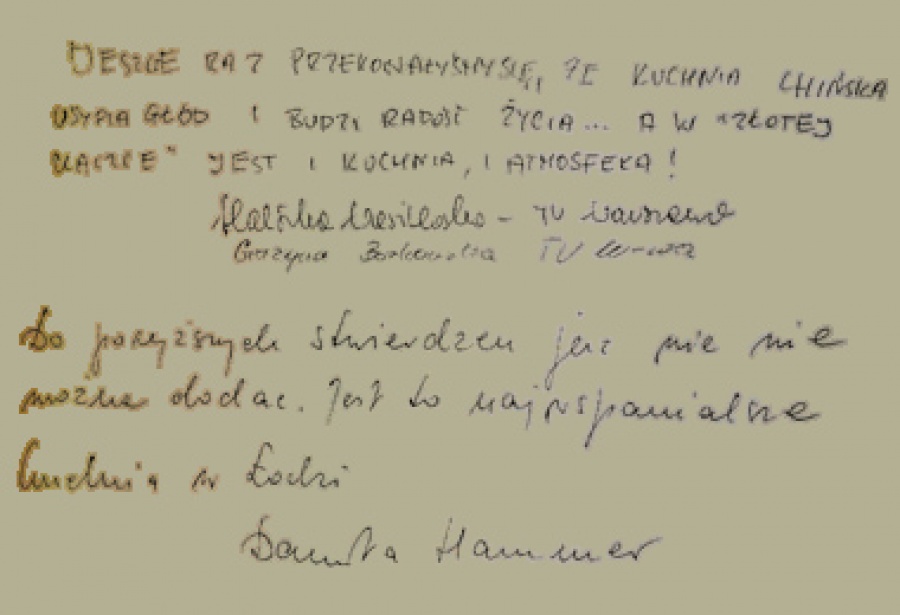 JESZCZE RAZ PRZEKONAŁYŚMY SIĘ, ŻE KUCHNIA CHIŃSKA
USYPIA GŁÓD I BUDZI RADOŚĆ ŻYCIA... A W "ZŁOTEJ
KACZCE" JEST I KUCHNIA, I ATMOSFERA!
- TV Warszawa
Grażyna Borkowska TV W-wa
Do powyższych stwierdzeń już nic nie
można dodać. Jest to najwspanialsza
kuchnia w Łodzi
Danuta Hammer